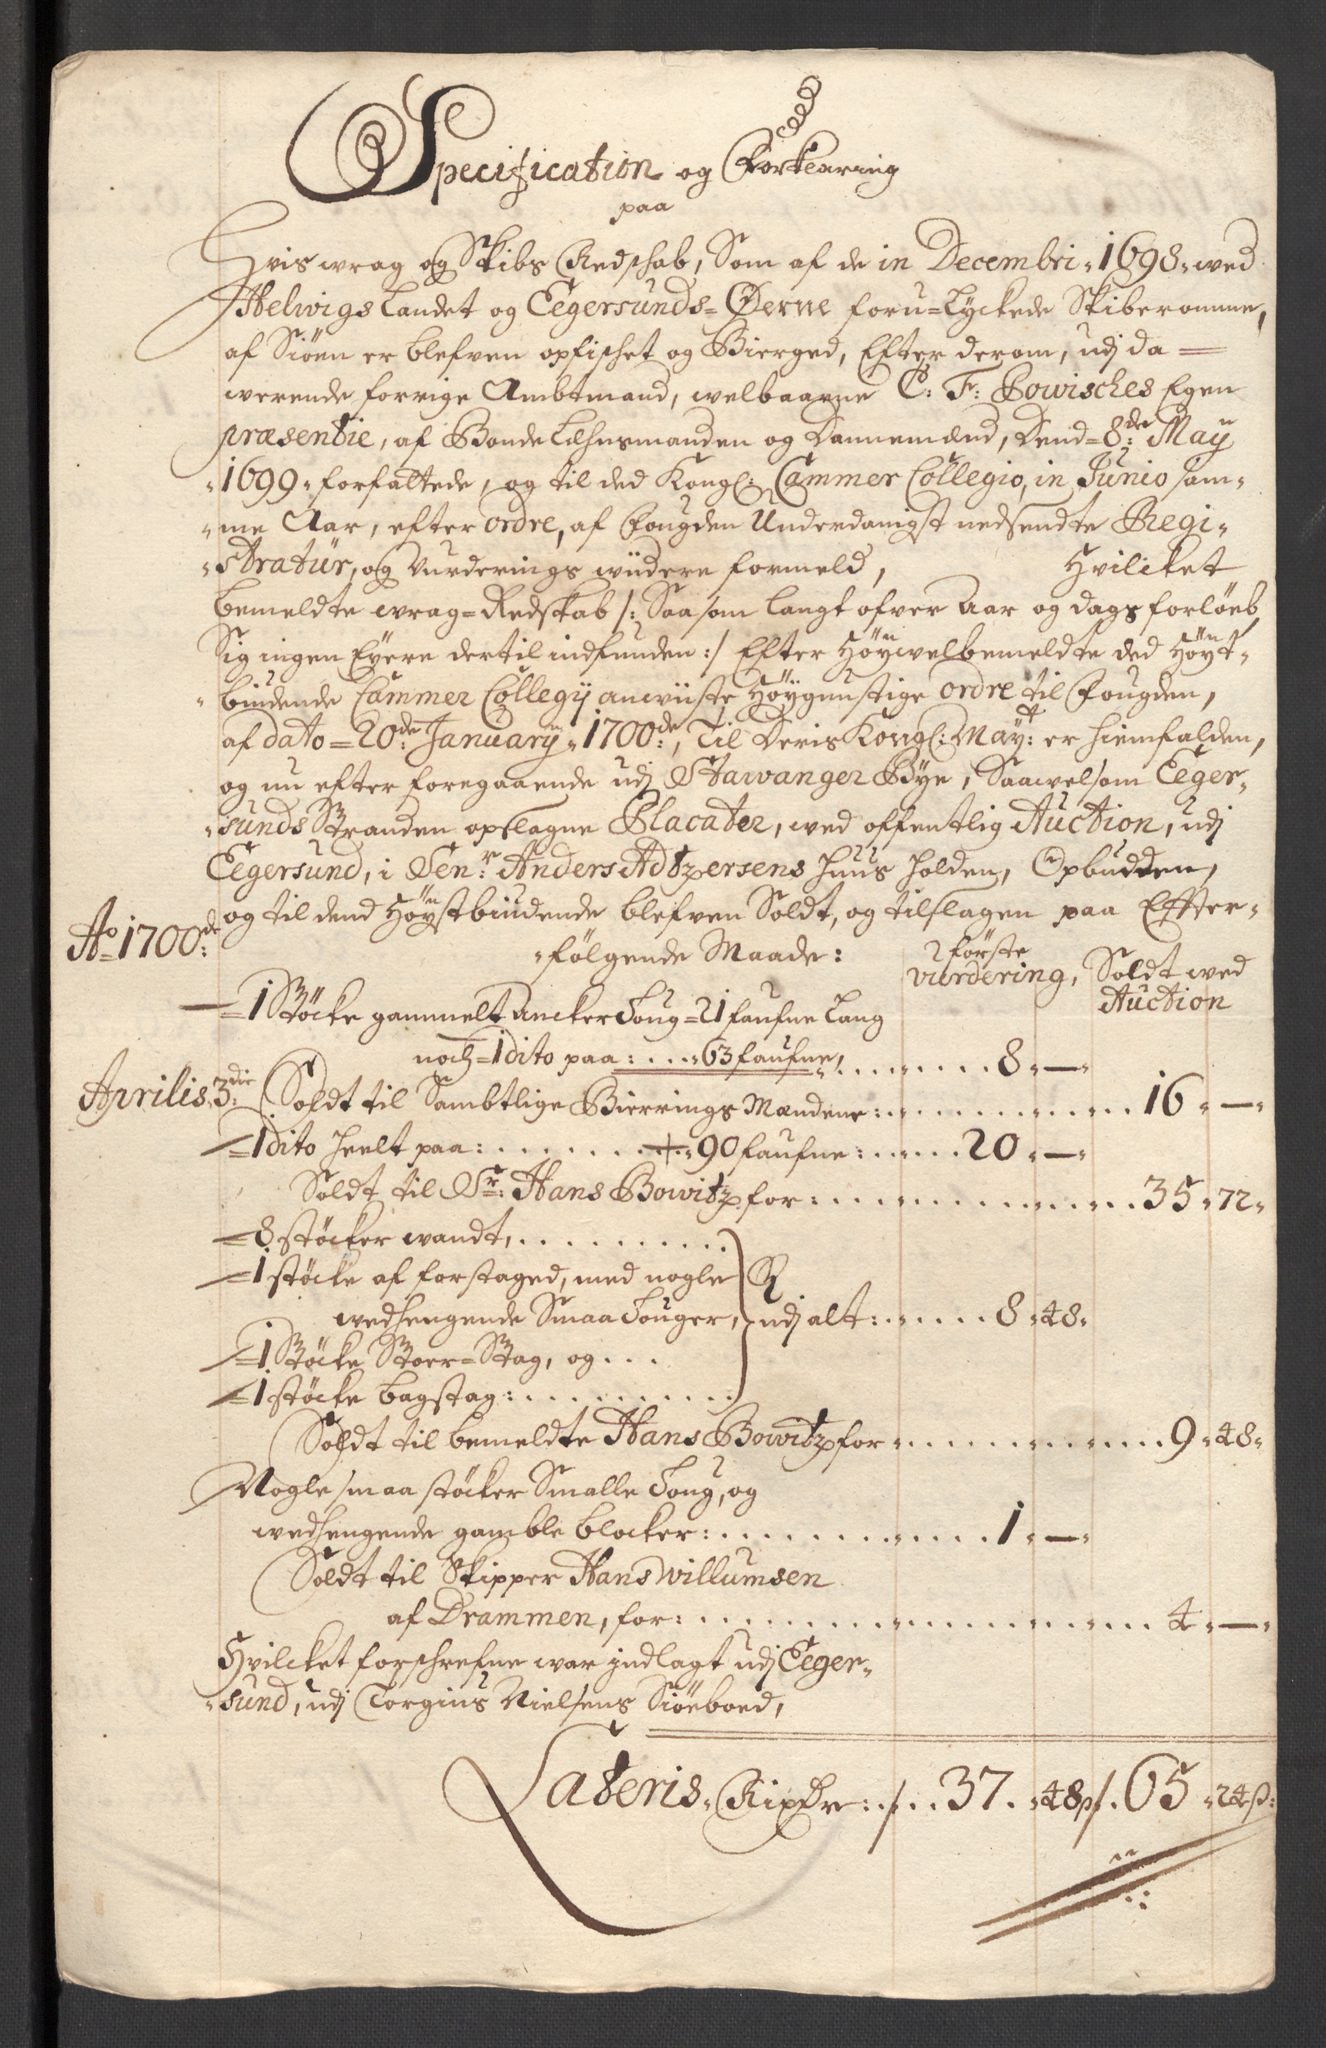 Specification og Forklaring
paa
Hvis wrag og Skibs Redschab, Som af de in Decembri 1698 wed
Helwigs Landet og Eegersunds Øerne foru=lyckede Skiberomme,
af Siöen er blefven opfischet og Bierged, Efter derom, udj da
werende forrige Ambtmand, welbaarne C: F: Powisches Egen
præsentie, af Bonde Lehnsmanden og Dannemænd, Dend 8de May
1699 forfattede, og til ded Kongl: Cammer Collegio, in Junio sam-
me Aar, efter ordre, af Fougden Underdanigst nedsendte Regi-
stratur, og Vurderings widere formeld, Hvilcket
bemeldte wrag=Redskab /: Saasom langt ofver Aar og dags forløeb,
Sig ingen Eyere dertil indfunden :/ Efter Höywelbemeldte ded Höyt-
biudende Cammer Collegij anwiiste Höygunstige ordre til Fougden,
af dato 20de January 1700de, Til Deris Kongl: Mayt: er hiemfalden,
og nu efter foregaaende udj Stawanger Bye, Saawelsom Eeger-
sunds Stranden opslagne Placater, wed offentlig Auction, udj
Eegersund, i Senr: Anders Adtzersens Huus holden, Opbudden,
og til dend Höystbiudende blefven Soldt, og tilslagen paa Effter-
Ao 1700de:
fölgende Maade: förste vurdering, Soldt wed Auction
1 Støcke gammelt Ancker Toug 21 faufne Lang
noch 1 dito paa: 63 faufne, 8 —
Aprilis 3die: Soldt til Sambtlige Bierrings Mændene: 16 —
1 dito heelt paa: 90 faufne: 20 —
Soldt til Sr: Hans Bowitz for: 35 72
8 støcker wandt,
1 støcke af forstaged, med nogle
wedhengende Smaa Touger, udj alt: 8 48
1 Støcke Stoer=Stag, og
1 støcke bagstag:
Soldt til bemeldte Hans Bowitz for 9 48
Nogle smaa støcker Smalle Toug, og
wedhengende gamble blocker: 1 —
Soldt til Skipper Hans Willumsen
af Drammen, for: 4 —
Hvilcket forschrefne war indlagt udj Eeger-
sund, udj Torgius Nielsens Siöeboed,
Lateris Rixdr: 37 48 ß 65 24 ß: